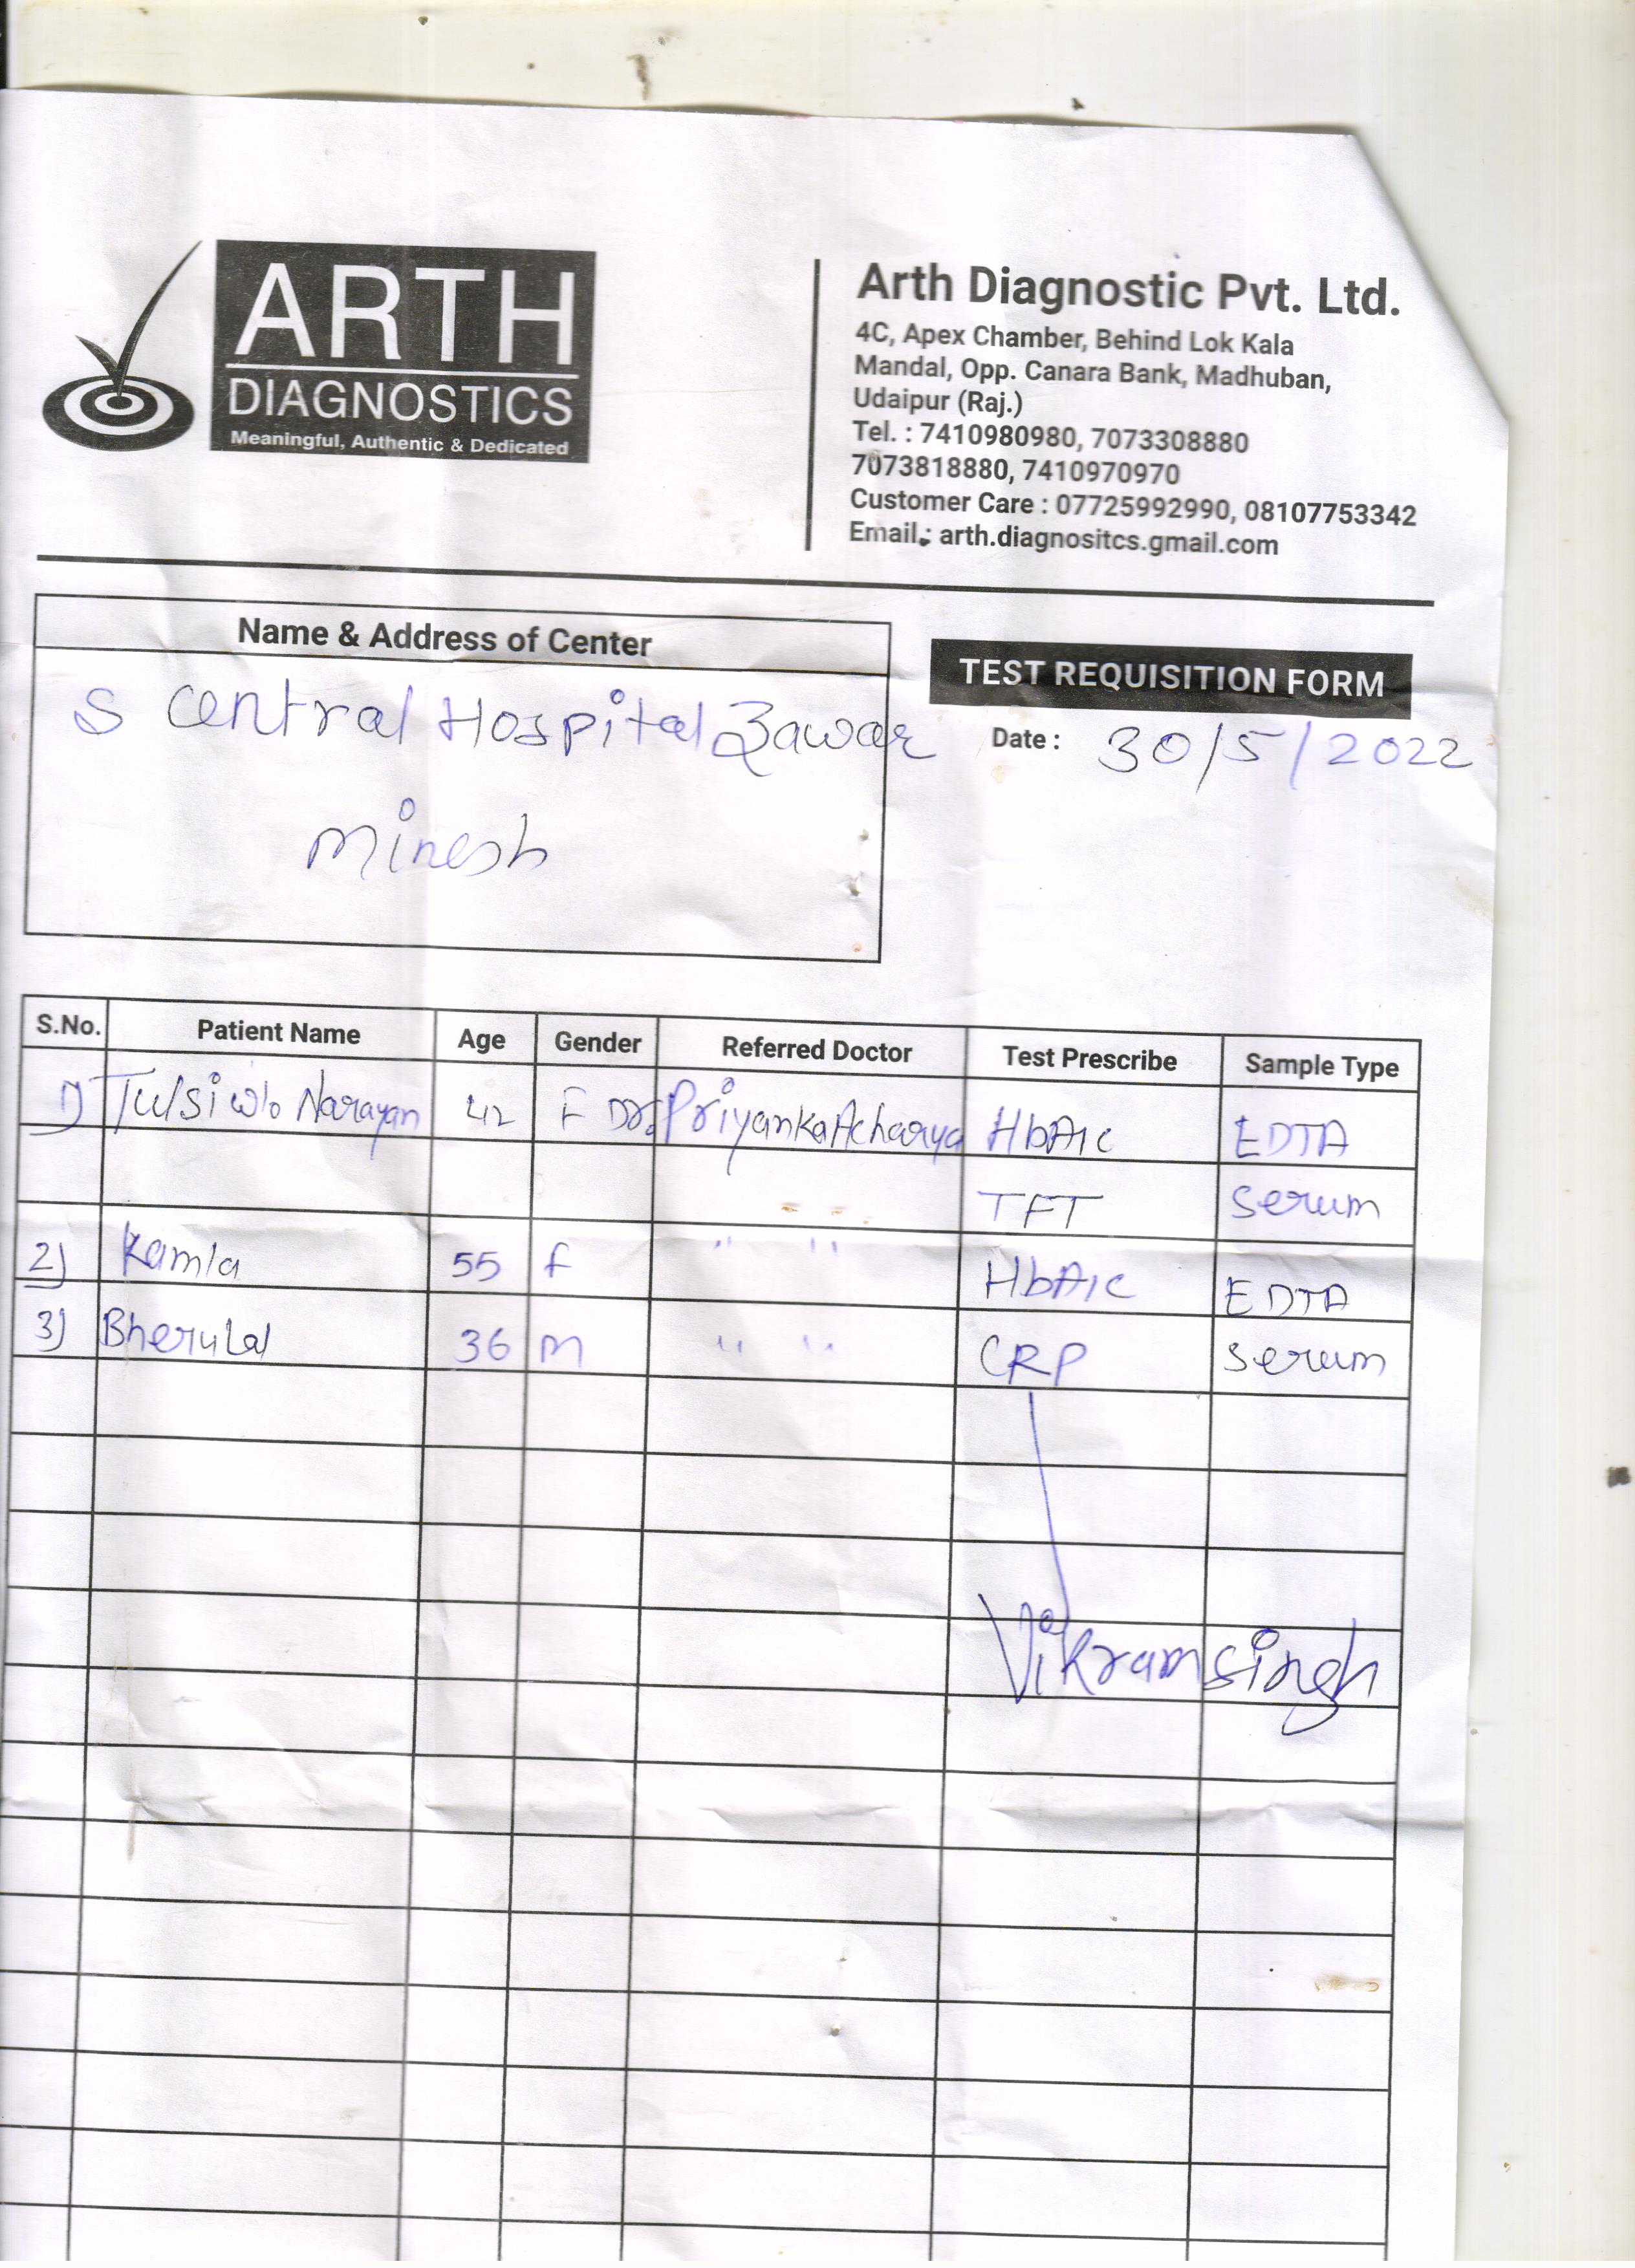 ARTH
DIAGNOSTICS
Meaningful, Authentic & Dedicated
Arth Diagnostic Pvt. Ltd.
4C, Apex Chamber, Behind Lok Kala
Mandal, Opp. Canara Bank, Madhuban,
Udaipur (Raj.)
Tel. : 7410980980, 7073308880
7073818880, 7410970970
Customer Care : 07725992990, 08107753342
Email.: arth.diagnositcs.gmail.com
Name & Address of Center
S Central Hospital Zawar
TEST REQUISITION FORM
Date : 30/5/2022
S.No. Patient Name Age Gender Referred Doctor Test Prescribe Sample Type
1) Tulsi w/o Narayan 42 F Dr. Priyanka Acharya HbA1c EDTA
TFT Serum
2) Kamla 55 f " " HbA1c EDTA
3) Bherulal 36 m " " CRP Serum
Vikram singh